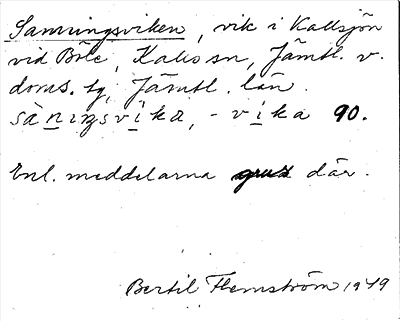 Sanningsviken, vik i Kallsjön
vid Böle, Kalls sn, Jämtl. v.
doms. tg, Jämtl. län.
sàningsvika, -vika 90.
Enl. meddelarna grus där.
Bertil Flemström 1949